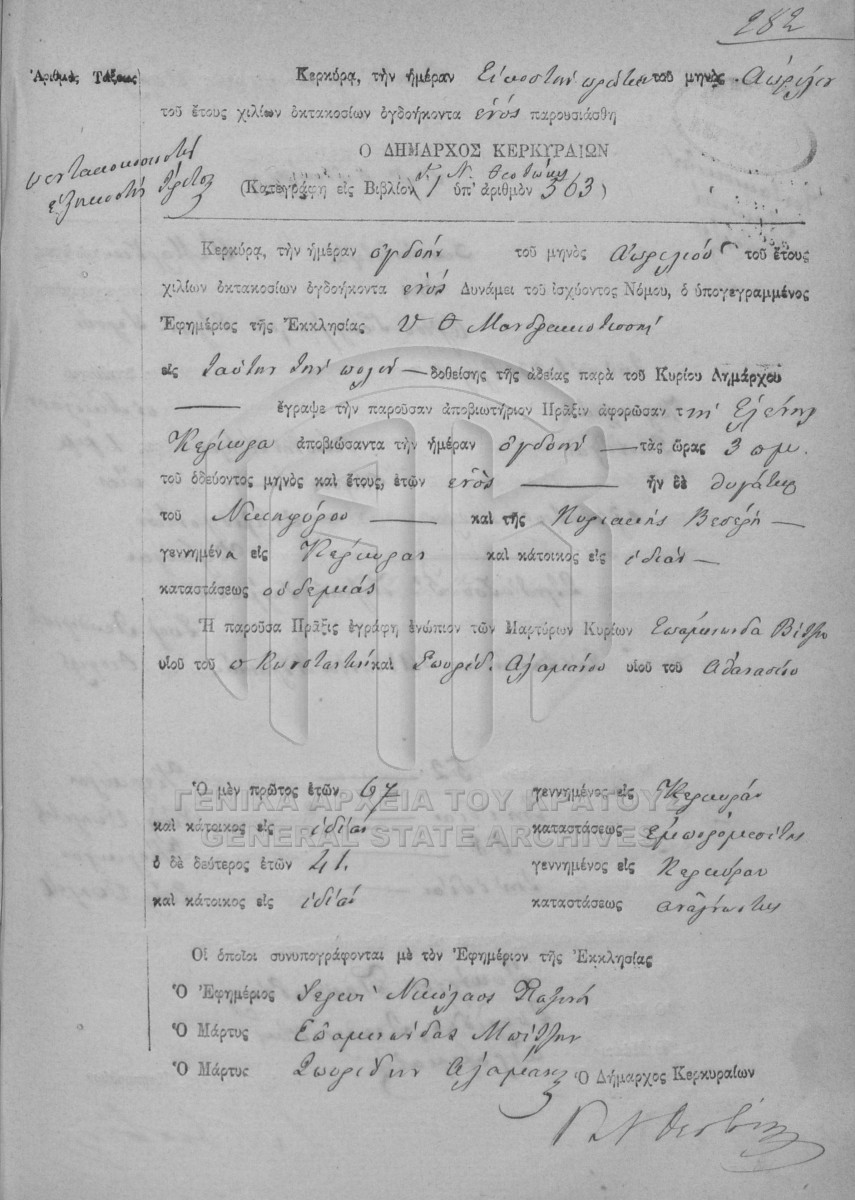 282
Ἀριθμὸς Τάξεως
Κερκύρα, τὴν ἡμέραν Εἰκοστὴν πρώτην τοῦ μηνὸς Ἀπριλίου
τοῦ ἔτους χιλίων ὀκτακοσίων ὀγδοήκοντα ἑνός παρουσιάσθη
πεντακοσιοστή
ἑξηκοστὴ τρίτη
Ο ΔΗΜΑΡΧΟΣ ΚΕΡΚΥΡΑΙΩΝ
Γ. Ν. Θεοτόκης
(Κατεγράφη εἰς Βιβλίον 1 ὑπ' ἀριθμὸν 563)
Κερκύρα, τὴν ἡμέραν ὀγδόην τοῦ μηνὸς Ἀπριλίου τοῦ ἔτους
χιλίων ὀκτακοσίων ὀγδοήκοντα ἑνός Δυνάμει τοῦ ἰσχύοντος Νόμου, ὁ ὑπογεγραμμένος
Ἐφημέριος τῆς Ἐκκλησίας Υ Θ Μανδρακιωτίσσης
εἰς ταύτην τὴν πόλιν — δοθείσης τῆς ἀδείας παρὰ τοῦ Κυρίου Δημάρχου
— ἔγραψε τὴν παροῦσαν ἀποβιωτήριον Πρᾶξιν ἀφορῶσαν τὴν Ἑλένην
Κέρκυρα ἀποβιώσαντα τὴν ἡμέραν ὀγδόην — τὰς ὥρας 3 πμ.
τοῦ ὁδεύοντος μηνὸς καὶ ἔτους, ἐτῶν ἑνὸς — ἦν δὲ θυγάτηρ
τοῦ Νικηφόρου — καὶ τῆς Κυριακῆς Βεσέρη —
γεννημένα εἰς Κέρκυραν καὶ κάτοικος εἰς ἰδίαν —
καταστάσεως οὐδεμιᾶς
Ἡ παροῦσα Πρᾶξις ἐγράφη ἐνώπιον τῶν Μαρτύρων Κυρίων Ἐπαμινώνδα
υἱοῦ τοῦ π Κωνσταντὴ καὶ Σπυρίδ. Ἀλαμάνου υἱοῦ τοῦ Ἀθανασίου
Ὁ μὲν πρῶτος ἐτῶν 67 γεννημένος εἰς Κέρκυραν
καὶ κάτοικος εἰς ἰδίαν καταστάσεως Ἐμπορομεσίτης
ὁ δὲ δεύτερος ἐτῶν 41. γεννημένος εἰς Κέρκυραν
καὶ κάτοικος εἰς ἰδίαν καταστάσεως ἀναγνώστης
Οἱ ὁποῖοι συνυπογράφονται μὲ τὸν Ἐφημέριον τῆς Ἐκκλησίας
Ὁ Ἐφημέριος Ἱερεὺς Νικόλαος
Ὁ Μάρτυς Ἐπαμινώνδας
Ὁ Μάρτυς Σπυρίδων Ἀλαμάνος
Ὁ Δήμαρχος Κερκυραίων
Γ Ν Θεοτόκης
ΓΕΝΙΚΑ ΑΡΧΕΙΑ ΤΟΥ ΚΡΑΤΟΥΣ
GENERAL STATE ARCHIVES